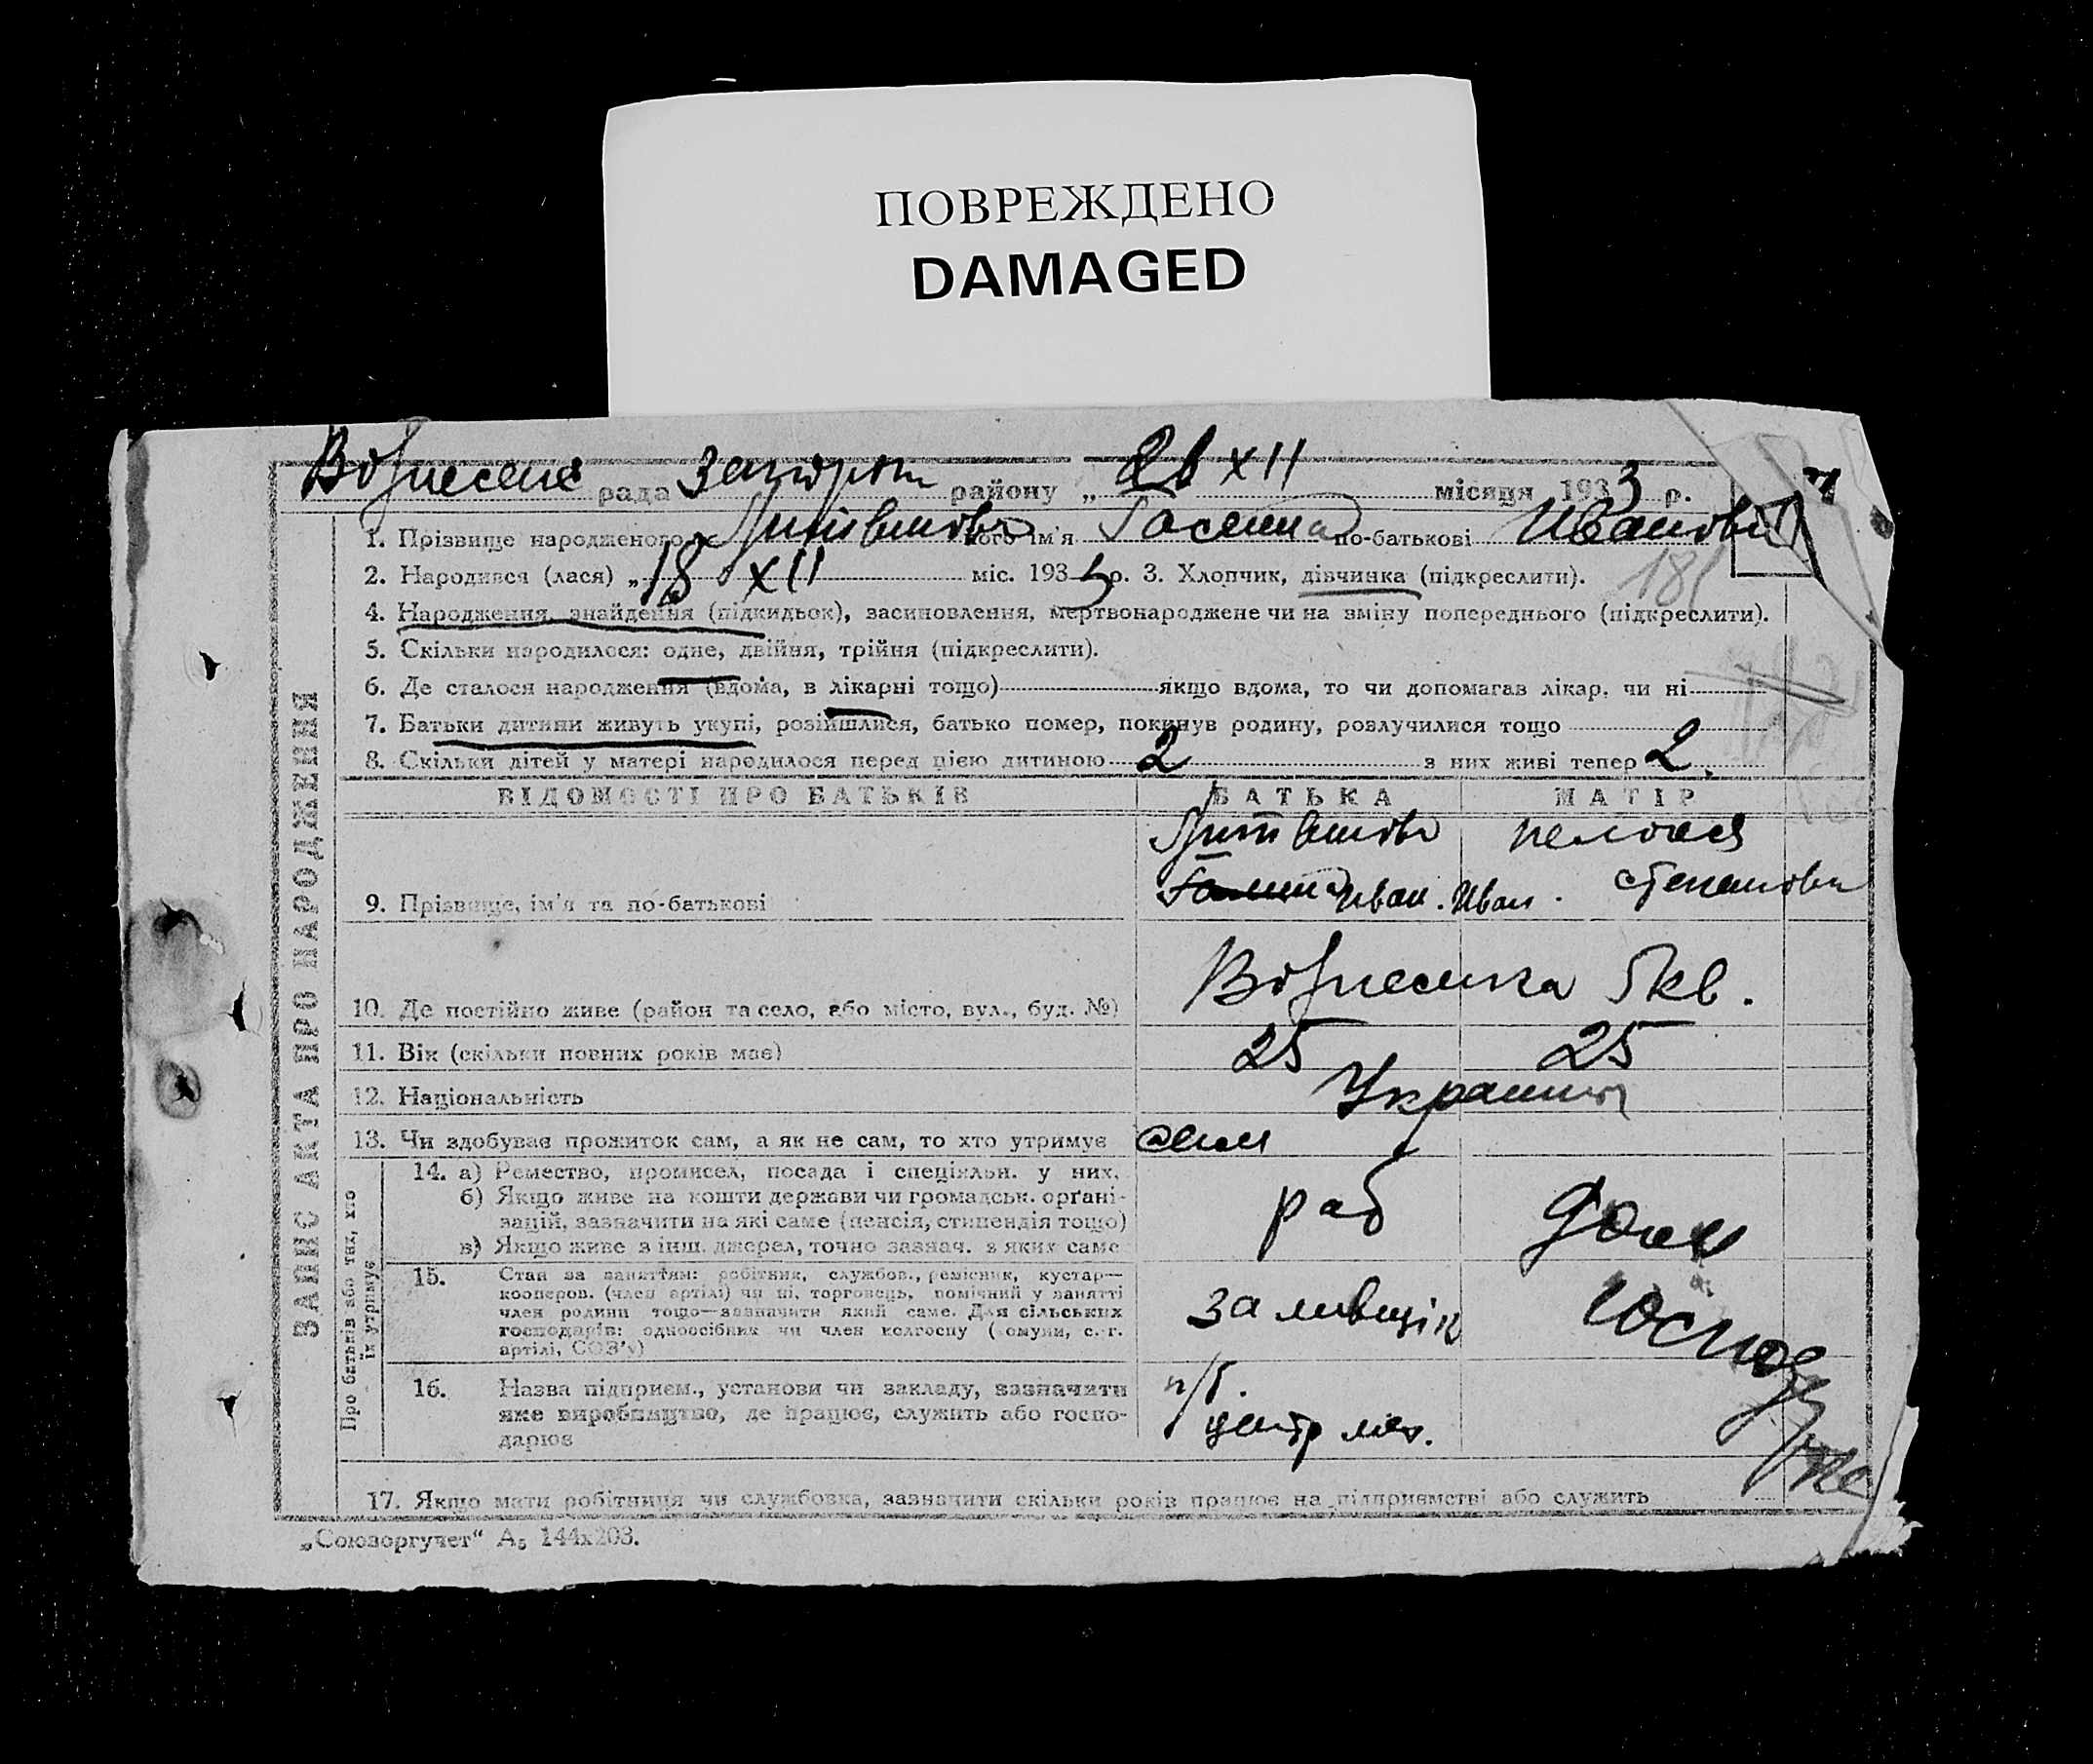 ПОВРЕЖДЕНО
DAMAGED
рада району „ XII місяця 1933 р.
1. Прізвище народженого його ім'я по-батькові
2. Народився (лася) „ 18 XII міс. 1933 р. 3. Хлопчик, дівчинка (підкреслити).
4. Народження, знайдення (підкидьок), засиновлення, мертвонароджене чи на зміну попереднього (підкреслити).
5. Скільки народилося: одне, двійня, трійня (підкреслити).
6. Де сталося народження (вдома, в лікарні тощо) якщо вдома, то чи допомагав лікар, чи ні
7. Батьки дитини живуть укупі, розійшлися, батько помер, покинув родину, розлучилися тощо
8. Скільки дітей у матері народилося перед цією дитиною 2 з них живі тепер 2
ВІДОМОСТІ ПРО БАТЬКІВ БАТЬКА МАТІР
9. Прізвище, ім'я та по-батькові Иван. Иван.
10. Де постійно живе (район та село, або місто, вул., буд. №) Вознесенка 5 кв.
11. Вік (скільки повних років має) 25 25
12. Національність
13. Чи здобуває прожиток сам, а як не сам, то хто утримує сам
14. а) Ремество, промисел, посада і спеціяльн. у них. раб дом
б) Якщо живе на кошти держави чи громадськ. орґані-
зацій, зазначити на які саме (пенсія, стипендія тощо)
в) Якщо живе з інш. джерел, точно зазнач. з яких саме
15. Стан за заняттям: робітник, службов., ремісник, кустар—
кооперов. (член артілі) чи ні, торговець, помічний у занятті
член родини тощо—зазначити який саме. Для сільських
господарів: одноосібник чи член колгоспу (комуни, с.-г.
артілі, СОЗ'у)
заливщік
16. Назва підприєм., установи чи закладу, зазначити
яке виробництво, де працює, служить або госпо-
дарює
центр мех.
17. Якщо мати робітниця чи службовка, зазначити скільки років працює на підприємстві або служить
„Союзоргучет" А5 144х203.
ЗАПИС АКТА ПРО НАРОДЖЕННЯ
Про батьків або тих, хто
їх утримує